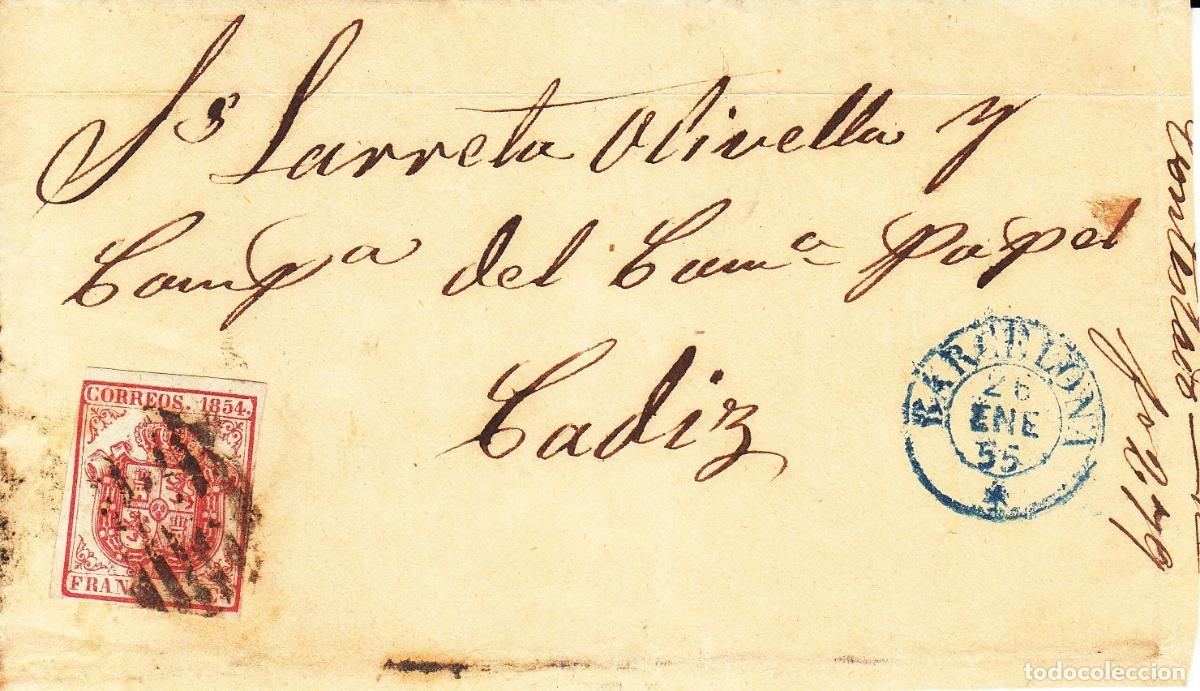 Ss Larreta Olivella y
Compa del Coma Papel
Cadiz
CORREOS. 1854.
FRAN
Cs
BARCELONA
26
ENE
55
todocoleccion